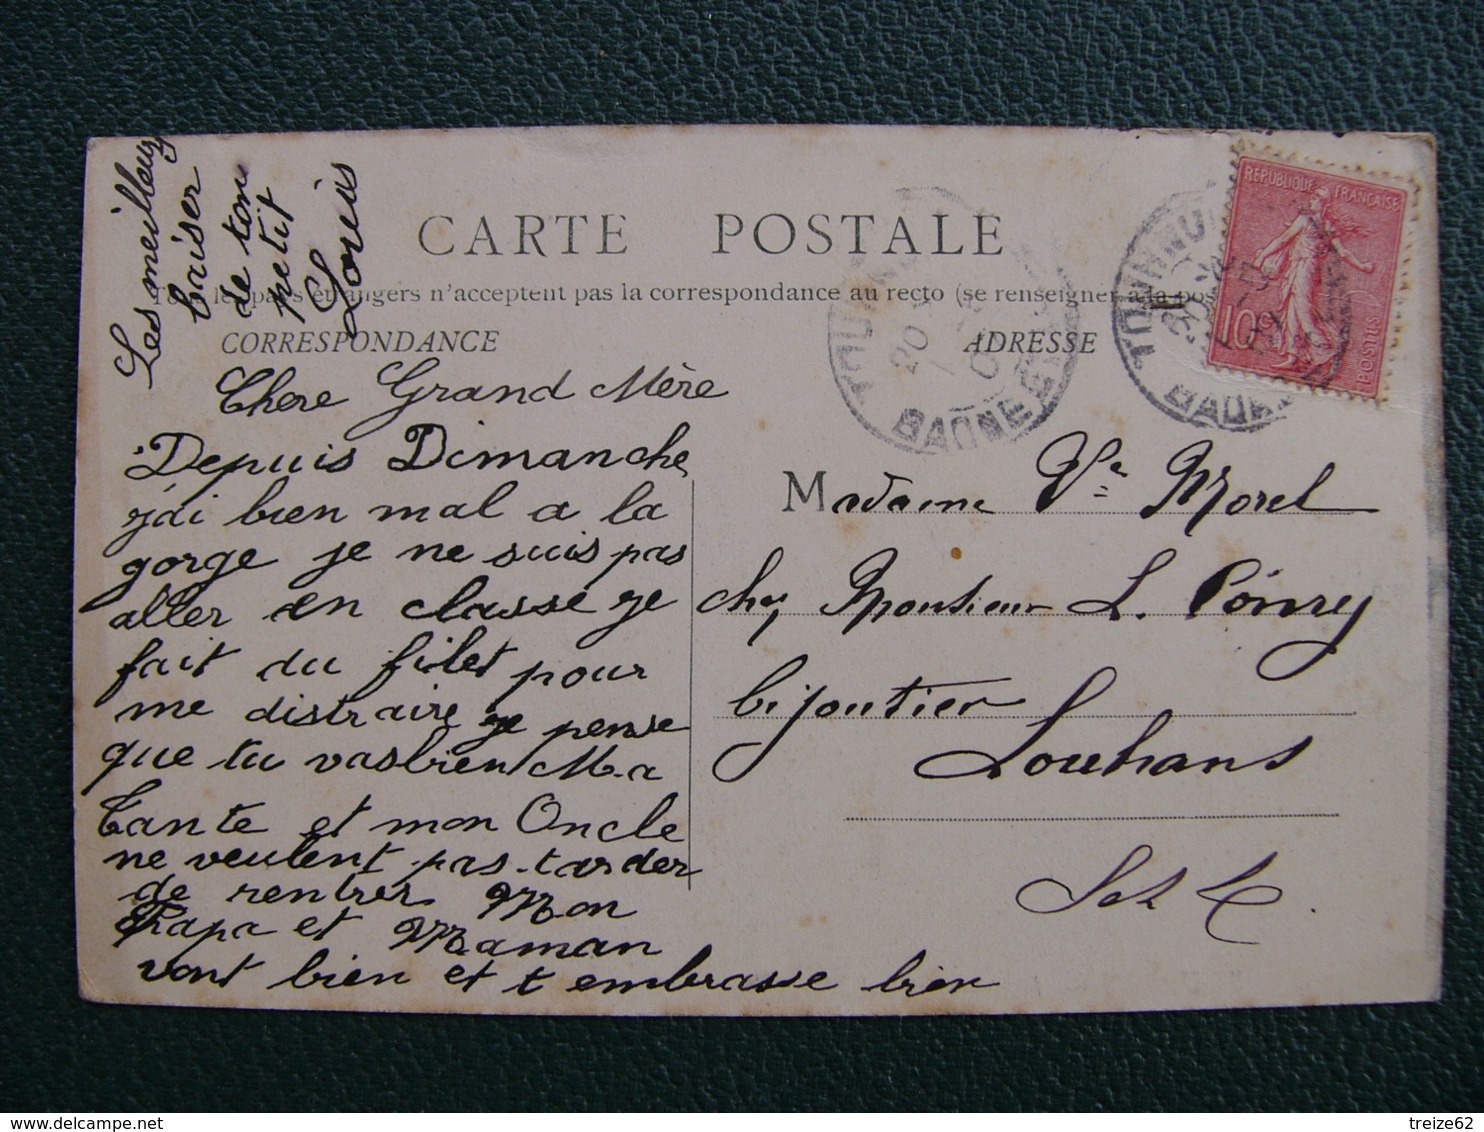 Les meilleurs
baiser
de ton
petit
Louis
CARTE POSTALE
Tous les pays étrangers n'acceptent pas la correspondance au recto (se renseigner à la pos
CORRESPONDANCE
ADRESSE
REPUBLIQUE FRANÇAISE
10c
POSTES
TOURNUS
20
Chere Grand Mère
Depuis Dimanche
j'ai bien mal a la
gorge je ne suis pas
aller en classe je
fait du filet pour
me distraire je pense
que tu vas bien Ma
Tante et mon Oncle
ne veulent pas tarder
de rentrer Mon
Papa et Maman
vont bien et t embrasse bien
Madame Ve Morel
chez Monsieur L.
bijoutier
Louhans
S et L.
treize62